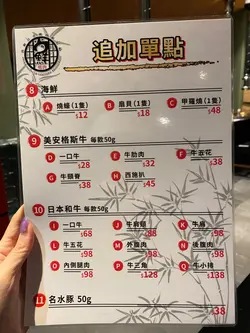 追加單點
8 海鮮
A 燒蠔(1隻) $12
B 扇貝(1隻) $18
C 甲羅燒(1隻) $48
9 美安格斯牛 每款50g
D 一口牛 $28
E 牛肋肉 $32
F 牛五花 $28
G 牛頸脊 $38
H 西施扒 $45
10 日本和牛 每款50g
I 一口牛 $68
J 牛肩頸 $88
K 牛扇 $98
L 牛五花 $98
M 外腹肉 $98
N 後腹肉 $98
O 內側腿肉 $98
P 牛三角 $128
Q 牛小排 $128
11 名水豚 50g
$38